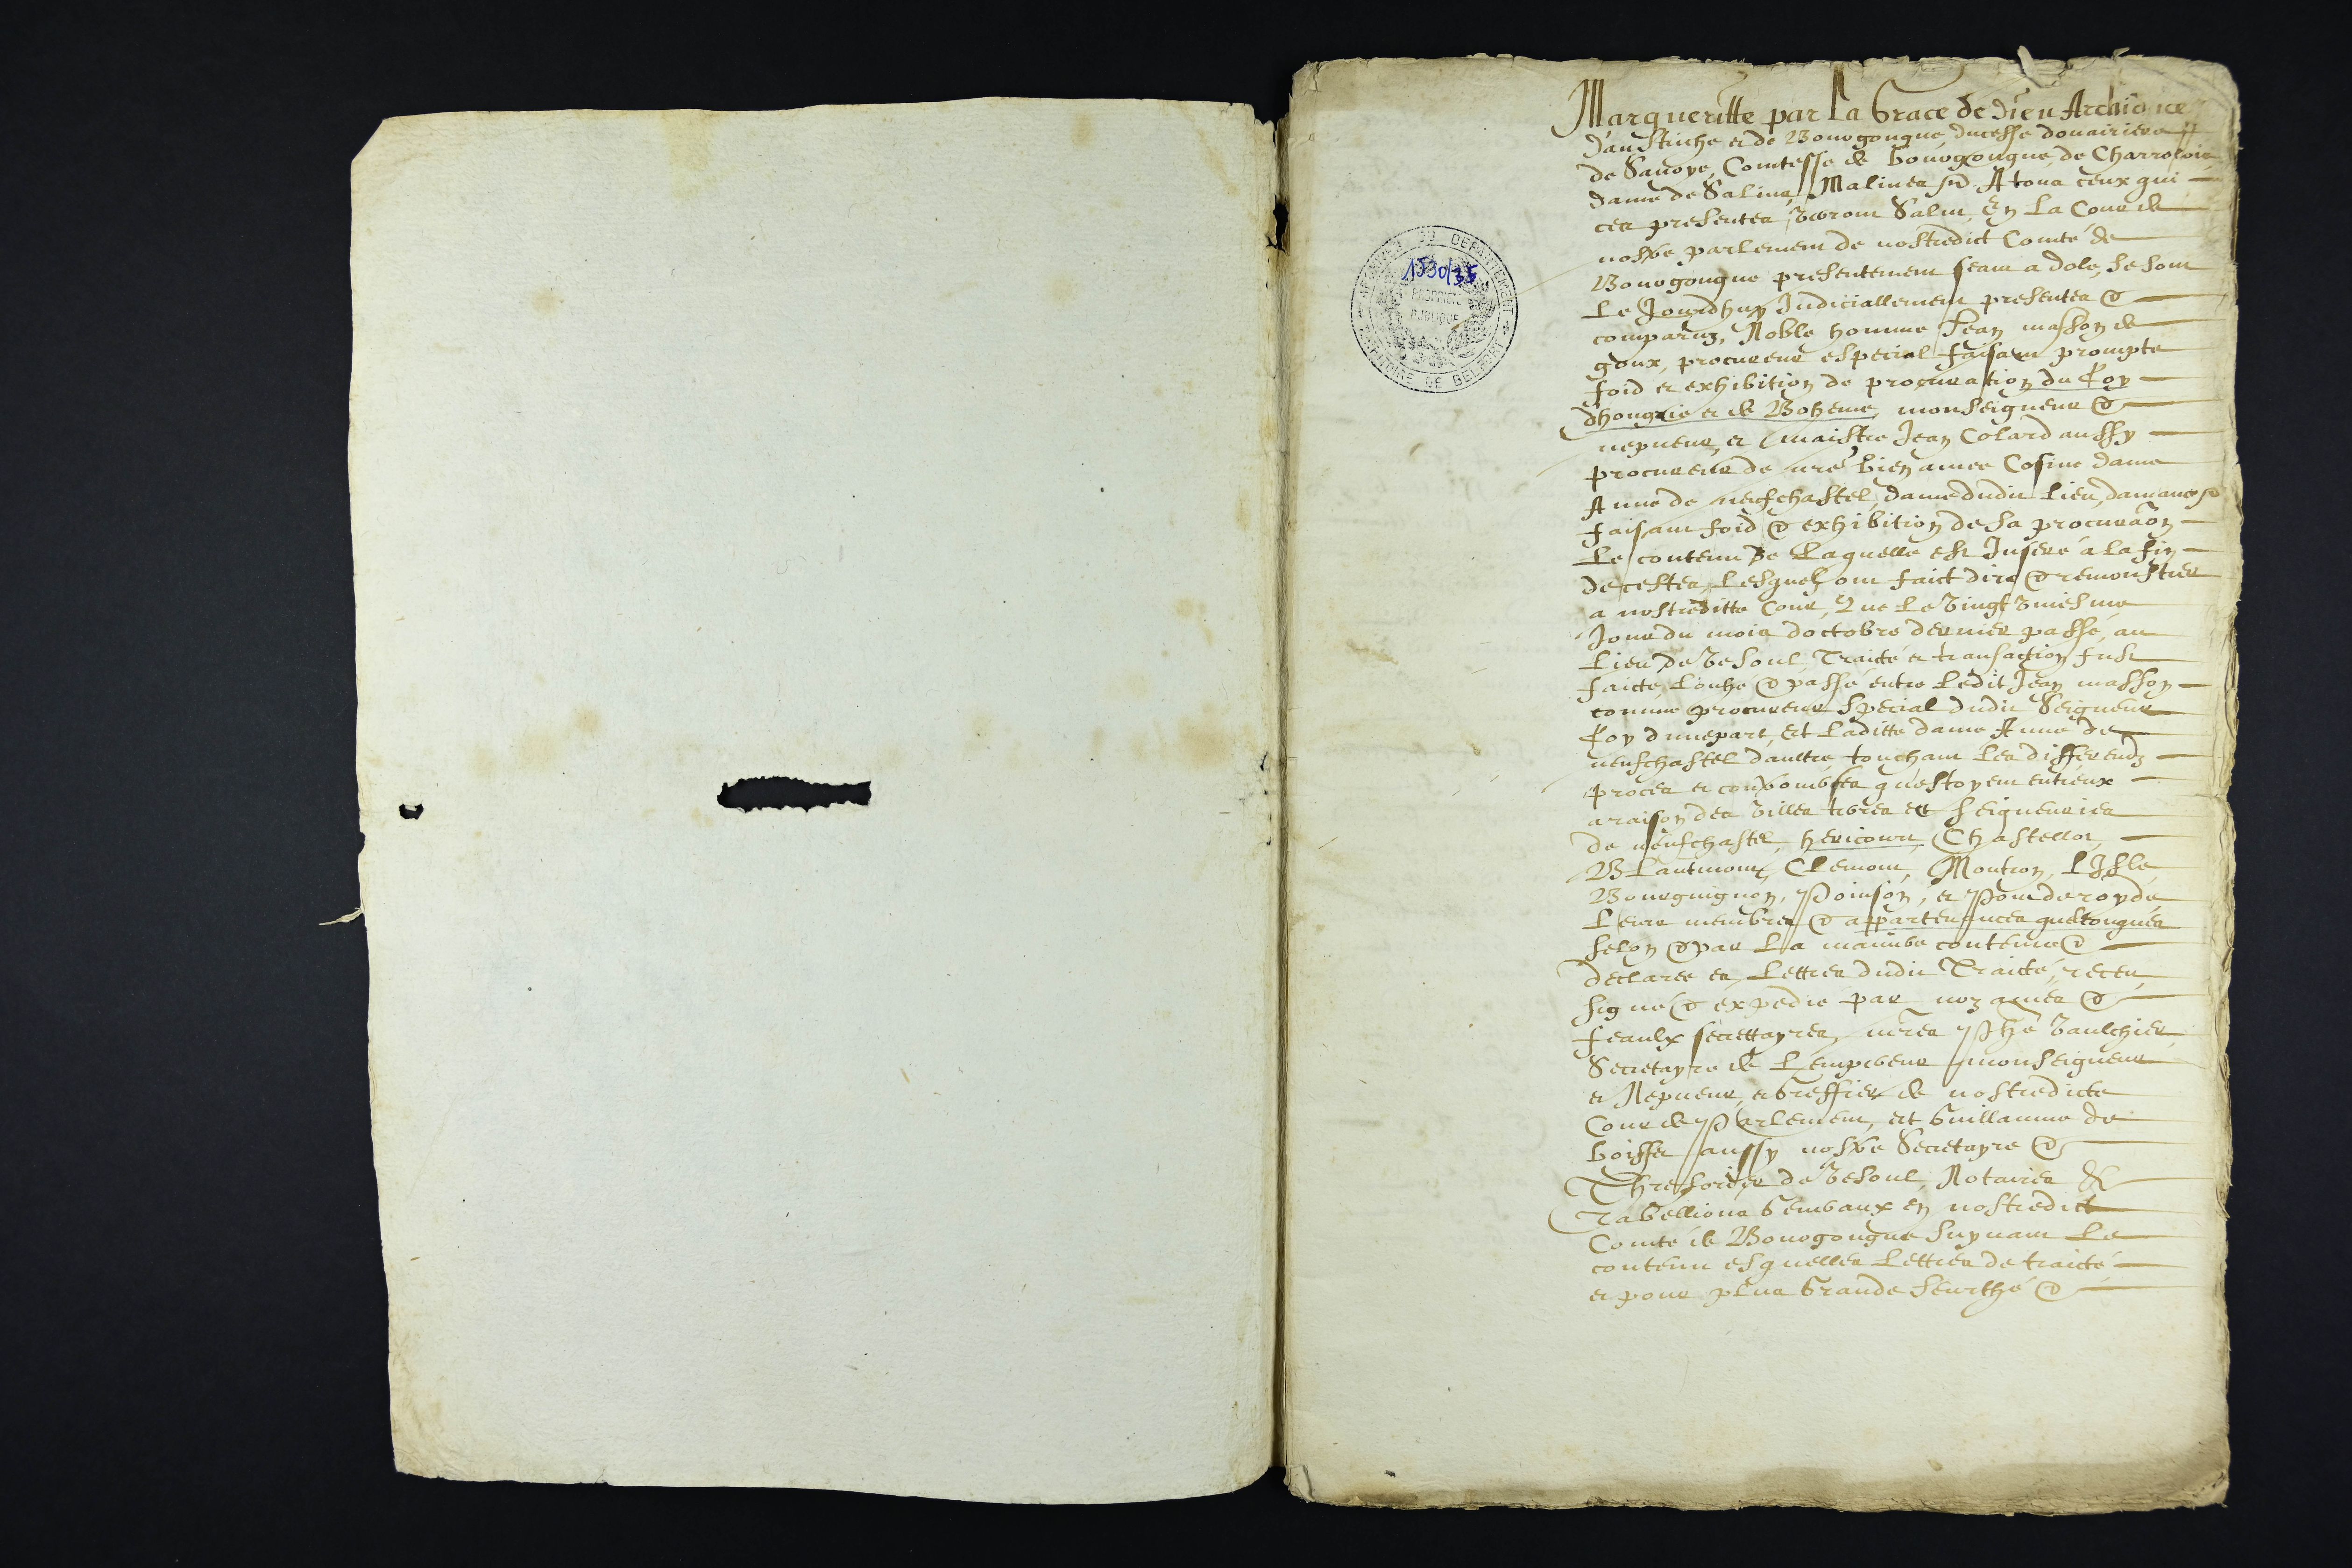 Margueritte par la Grace de dieu Archiduce
daustriche et de Bourgongne ducesse douairiere
de Savoye, Comtesse de bourgongne de Charrolois
dame de Salins, Malines &c. A tous ceux qui
ces presentes verront Salut. En la Cour de
nostre parlement de nostredict Comté de
Bourgongne presentement seant a dole, se sont
le Jourdhuy Judiciallement presentés &
comparuz, Noble homme Jean masson de
goux, procureur especial faisant prompte
foid et exhibition de procuration du Roy
dhongrie et de Boheme, monseigneur &
nepueur, et maistre Jean Colard aussy
procureur de nre bien amee Cosine dame
Anne de neufchastel, dame dudit lieu,
faisant foid & exhibition de sa procuraon
le contenu de laquelle est Inseré a la fin
de cestes, lesquelz ont faict dire & remonstrer
a nostreditte Cour, Que le vingt uniesme
Jour du mois doctobre dernier passé, au
lieu de vesoul Traicté et transaction fust
faicte, & passé entre ledit Jean masson
comme procureur special dudit Seigneur
Roy dunepart, et laditte dame Anne de
neufchastel daultre, touchant les differendz
proces et questoyent entreux
a raison des villes terres et seigneuries
de neufchastel, hericourt, Chastellot,
Blantmont, Clemont, Montron, lIsle
Bourguignon, et Pontderoyde
leurs membres & appartenances quelconques
selon & par la maniere contenue &
declaree es lettres dudit Traicté, receu
signé & expedié par noz amés &
feaulx secrettayres, mres Phe vaulchier
Secretayre de lempereur monseigneur
et Nepueur, et Greffier de nostredicte
Cour de Parlement, et Guillaume de
boisset aussy nostre Secretayre &
Thresorier de vesoul, Notaires &
Tabellions Generaux en nostredict
Comté de Bourgongne suyuant le
contenu esquelles lettres de traicté
et pour plus Grande seurthé &
ARCHIVES DU DEPARTEMENT
TERRITOIRE DE BELFORT
PROPRIETE
PUBLIQUE
1J30/35